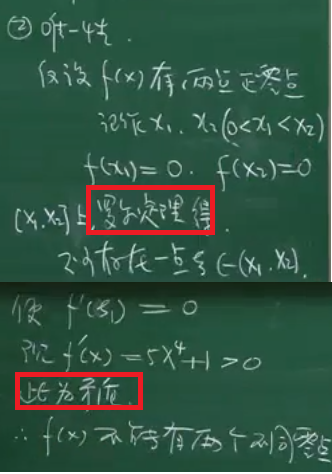 ② 唯一性.
假设 f(x) 有两点正零点
记作 x₁. x₂ (0<x₁<x₂)
f(x₁)=0. f(x₂)=0
[x₁.x₂]上 罗尔定理得.
存在一点ξ∈(x₁,x₂).
使 f'(ξ₁)=0
f'(x)=5x⁴+1>0
此为矛盾.
∴ f(x) 不能有两个不同零点